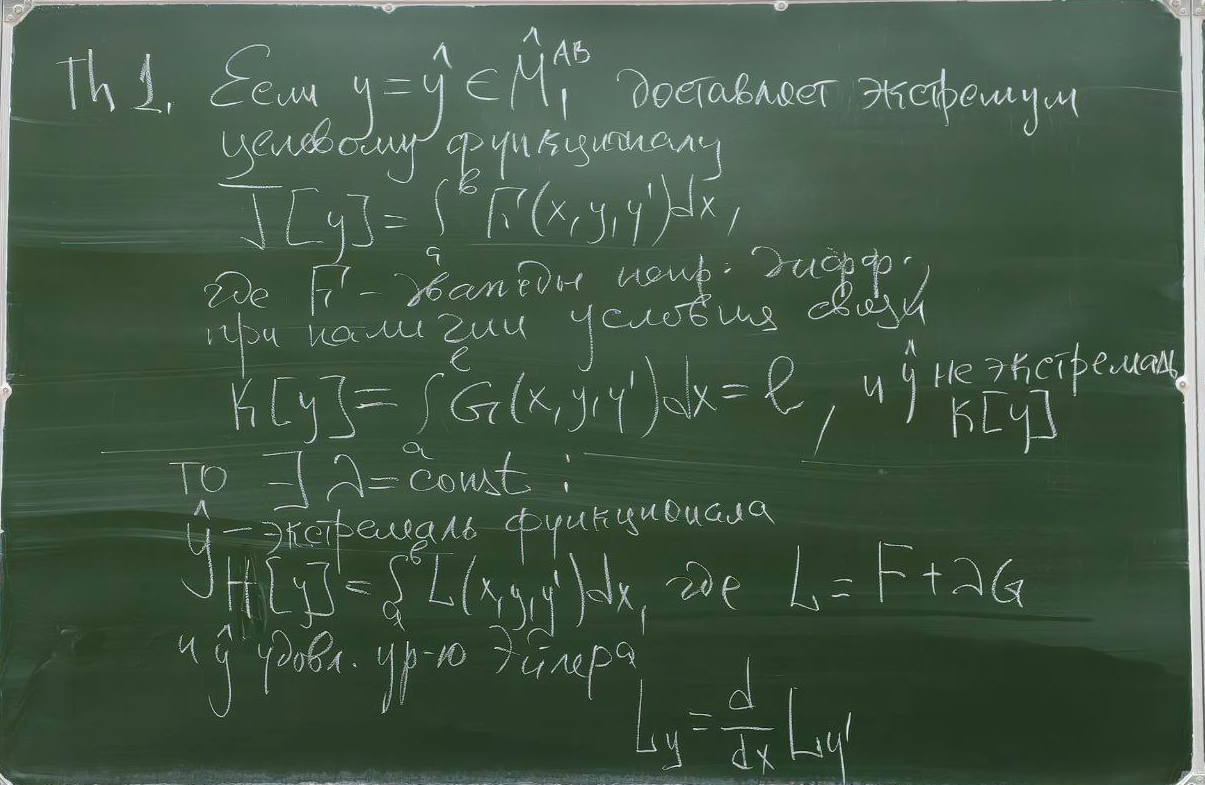 Th 1. Если y = ŷ ∈ M̂₁ᴬᴮ доставляет экстремум
целевому функционалу
J[y] = ∫ₐᵇ F(x, y, y') dx,
где F - дважды непр. дифф.,
при наличии условия связи
K[y] = ∫ₐᵇ G(x, y, y') dx = l, и ŷ не экстремаль K[y]
то ∃ λ = const :
ŷ - экстремаль функционала
H[y] = ∫ₐᵇ L(x, y, y') dx, где L = F + λG
и ŷ удовл. ур-ю Эйлера
L_y = d/dx L_y'